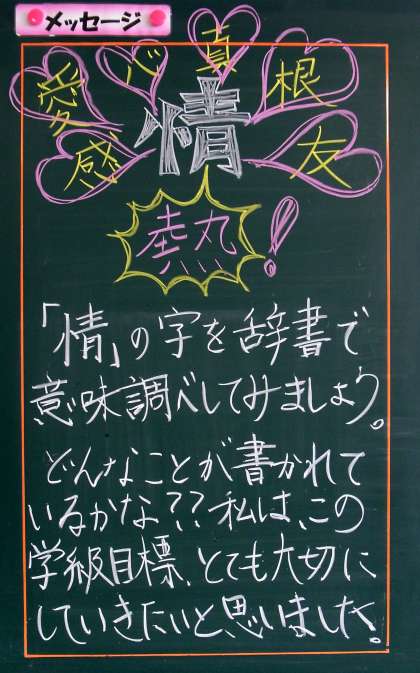 メッセージ
愛 心 真 根
感 情 友
熱!
「情」の字を辞書で
意味調べしてみましょう。
どんなことが書かれて
いるかな??私は、この
学級目標、とても大切に
していきたいと、思いました。